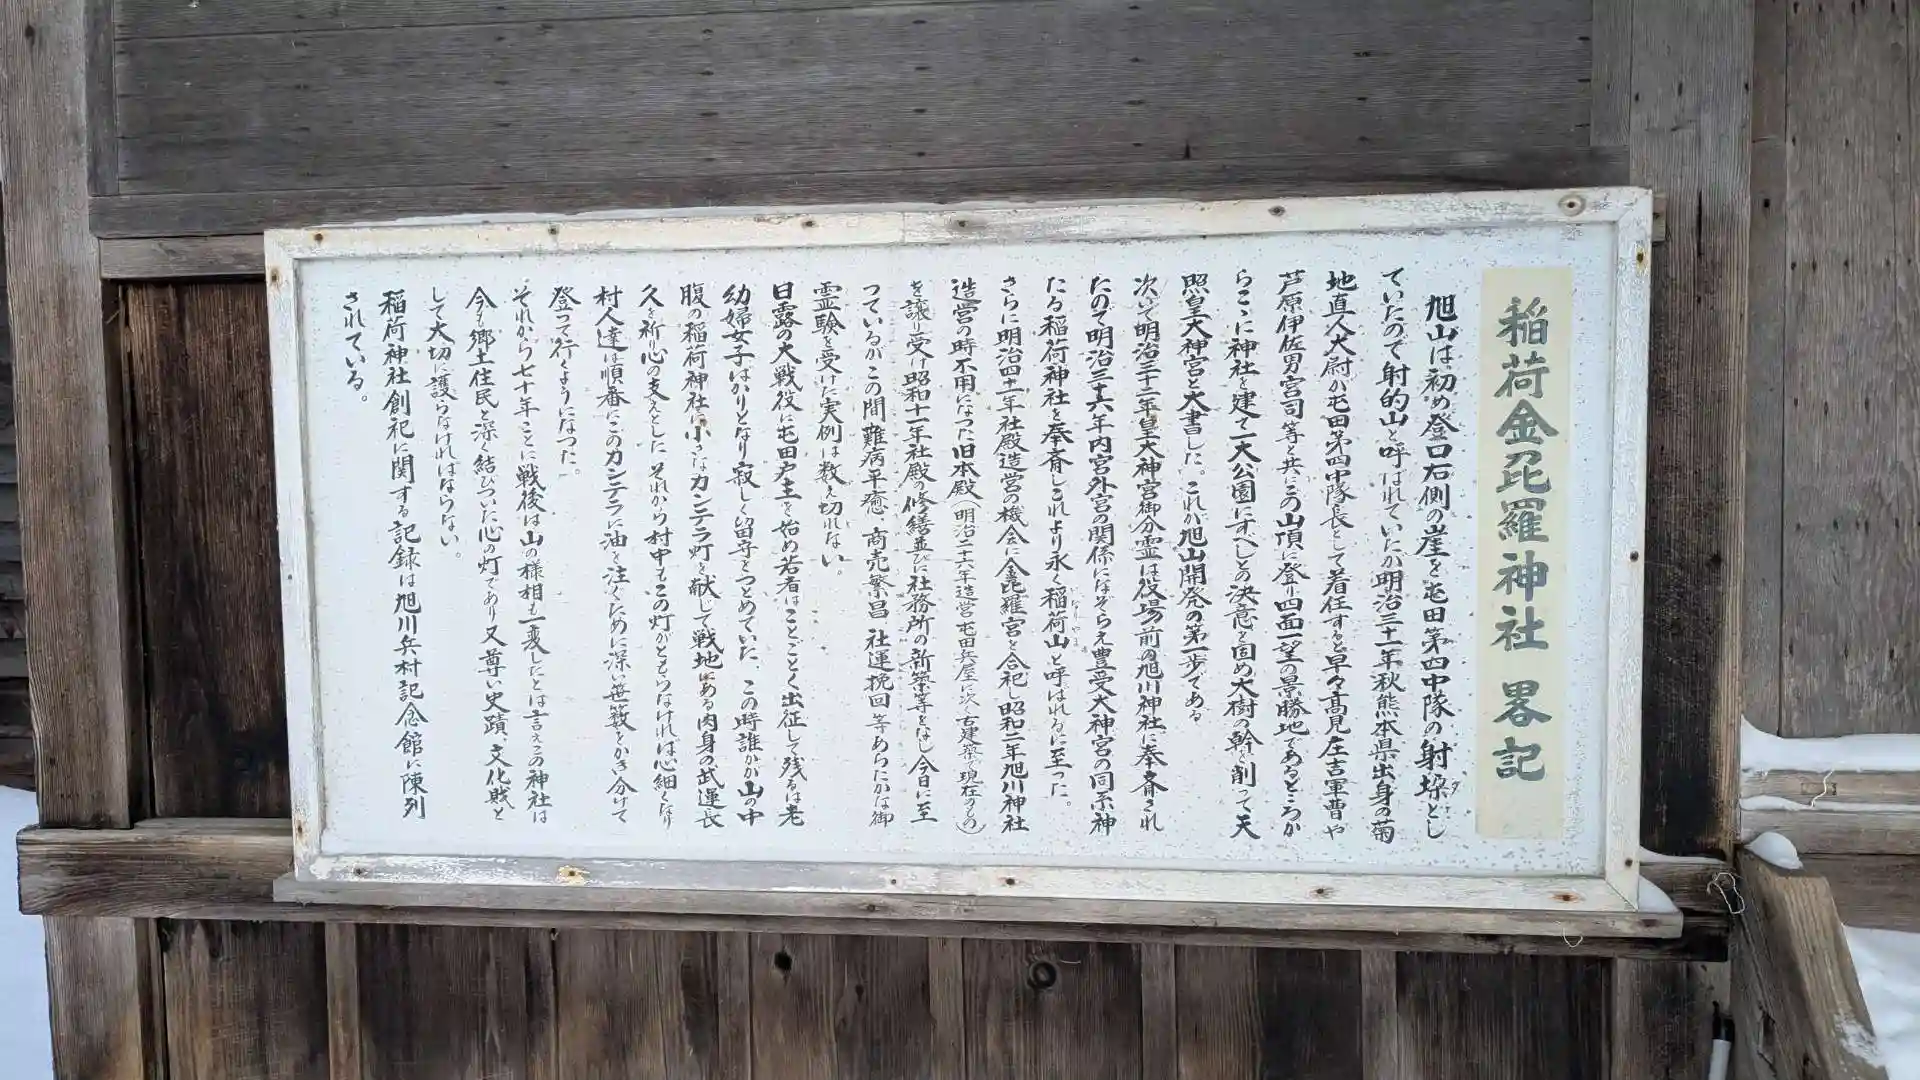 稲荷金毘羅神社 畧記
旭山は初め登口右側の崖を屯田第四中隊の射垜とし
ていたので射的山と呼ばれていたが明治三十一年秋熊本県出身の菊
地直人大尉が屯田第四中隊長として着任すると早々高見庄吉軍曹や
芦原伊佐男宮司等と共にこの山頂に登り四面一望の景勝地であるところか
らここに神社を建て一大公園にすべしとの決意を固め大樹の幹を削って天
照皇大神宮と大書した。これが旭山開発の第一歩である
次いで明治三十二年皇大神宮御分霊は役場前の旭川神社に奉斎され
たので明治三十六年内宮外宮の関係になぞらえ豊受大神宮の同系神
たる稲荷神社を奉斎しこれより永く稲荷山と呼ばれるに至った。
さらに明治四十一年社殿造営の機会に金毘羅宮を合祀し昭和二年旭川神社
造営の時不用になった旧本殿(明治二十六年造営屯田兵屋に次ぐ古建築で現在のもの)
を譲り受け昭和十一年社殿の修繕並びに社務所の新築等をなし今日に至
っているがこの間難病平癒、商売繁昌 社運挽回 等あらたかな御
霊験を受けた実例は数え切れない。
日露の大戦役に屯田戸主を始め若者はことごとく出征して残るは老
幼婦女子ばかりとなり寂しく留守をつとめていた、この時誰かが山の中
腹の稲荷神社に小さなカンテラ灯を献じて戦地にある肉身の武運長
久を祈り心の支えとした それから村中もこの灯がともらなければ心細くなり
村人達は順番にこのカンテラに油を注ぐために深い笹籔をかき分けて
登って行くようになった。
それから七十年ことに戦後は山の様相も一変したとは言えこの神社は
今も郷土住民と深く結びついた心の灯であり又尊い史蹟、文化財と
して大切に護らなければならない。
稲荷神社創祀に関する記録は旭川兵村記念館に陳列
されている。